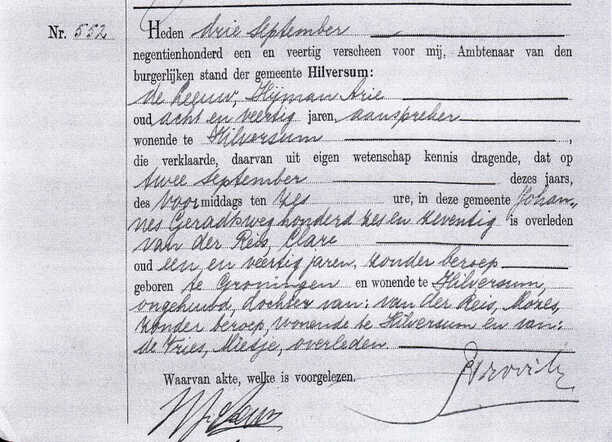 Nr. 552
Heden drie september
negentienhonderd een en veertig verscheen voor mij, Ambtenaar van den
burgerlijken stand der gemeente Hilversum:
de Leeuw, Hijman Arie
oud acht en veertig jaren, aanspreker
wonende te Hilversum ,
die verklaarde, daarvan uit eigen wetenschap kennis dragende, dat op
twee september dezes jaars,
des voormiddags ten zes ure, in deze gemeente Johan-
nes Geradtsweg honderd zes en zeventig is overleden
van der Reis, Clare
oud een en veertig jaren, zonder beroep
geboren te Groningen en wonende te Hilversum,
ongehuwd, dochter van: van der Reis, Mozes,
zonder beroep, wonende te Hilversum en van:
de Vries, Mietje, overleden
Waarvan akte, welke is voorgelezen.